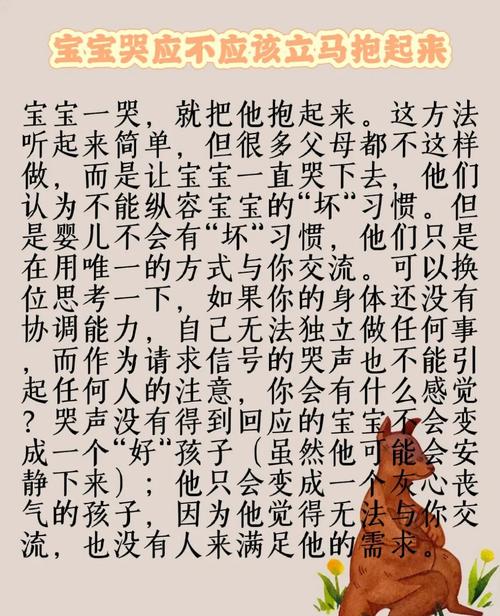 宝宝哭应不应该立马抱起来
宝宝一哭，就把他抱起来。这方法
听起来简单，但很多父母都不这样
做，而是让宝宝一直哭下去，他们
认为不能纵容宝宝的“坏”习惯。但
是婴儿不会有“坏”习惯，他们只是
在用唯一的方式与你交流。可以换
位思考一下，如果你的身体还没有
协调能力，自己无法独立做任何事
，而作为请求信号的哭声也不能引
起任何人的注意，你会有什么感觉
？哭声没有得到回应的宝宝不会变
成一个“好”孩子（虽然他可能会安
静下来）；他只会变成一个灰心丧
气的孩子，因为他觉得无法与你交
流，也没有人来满足他的需求。